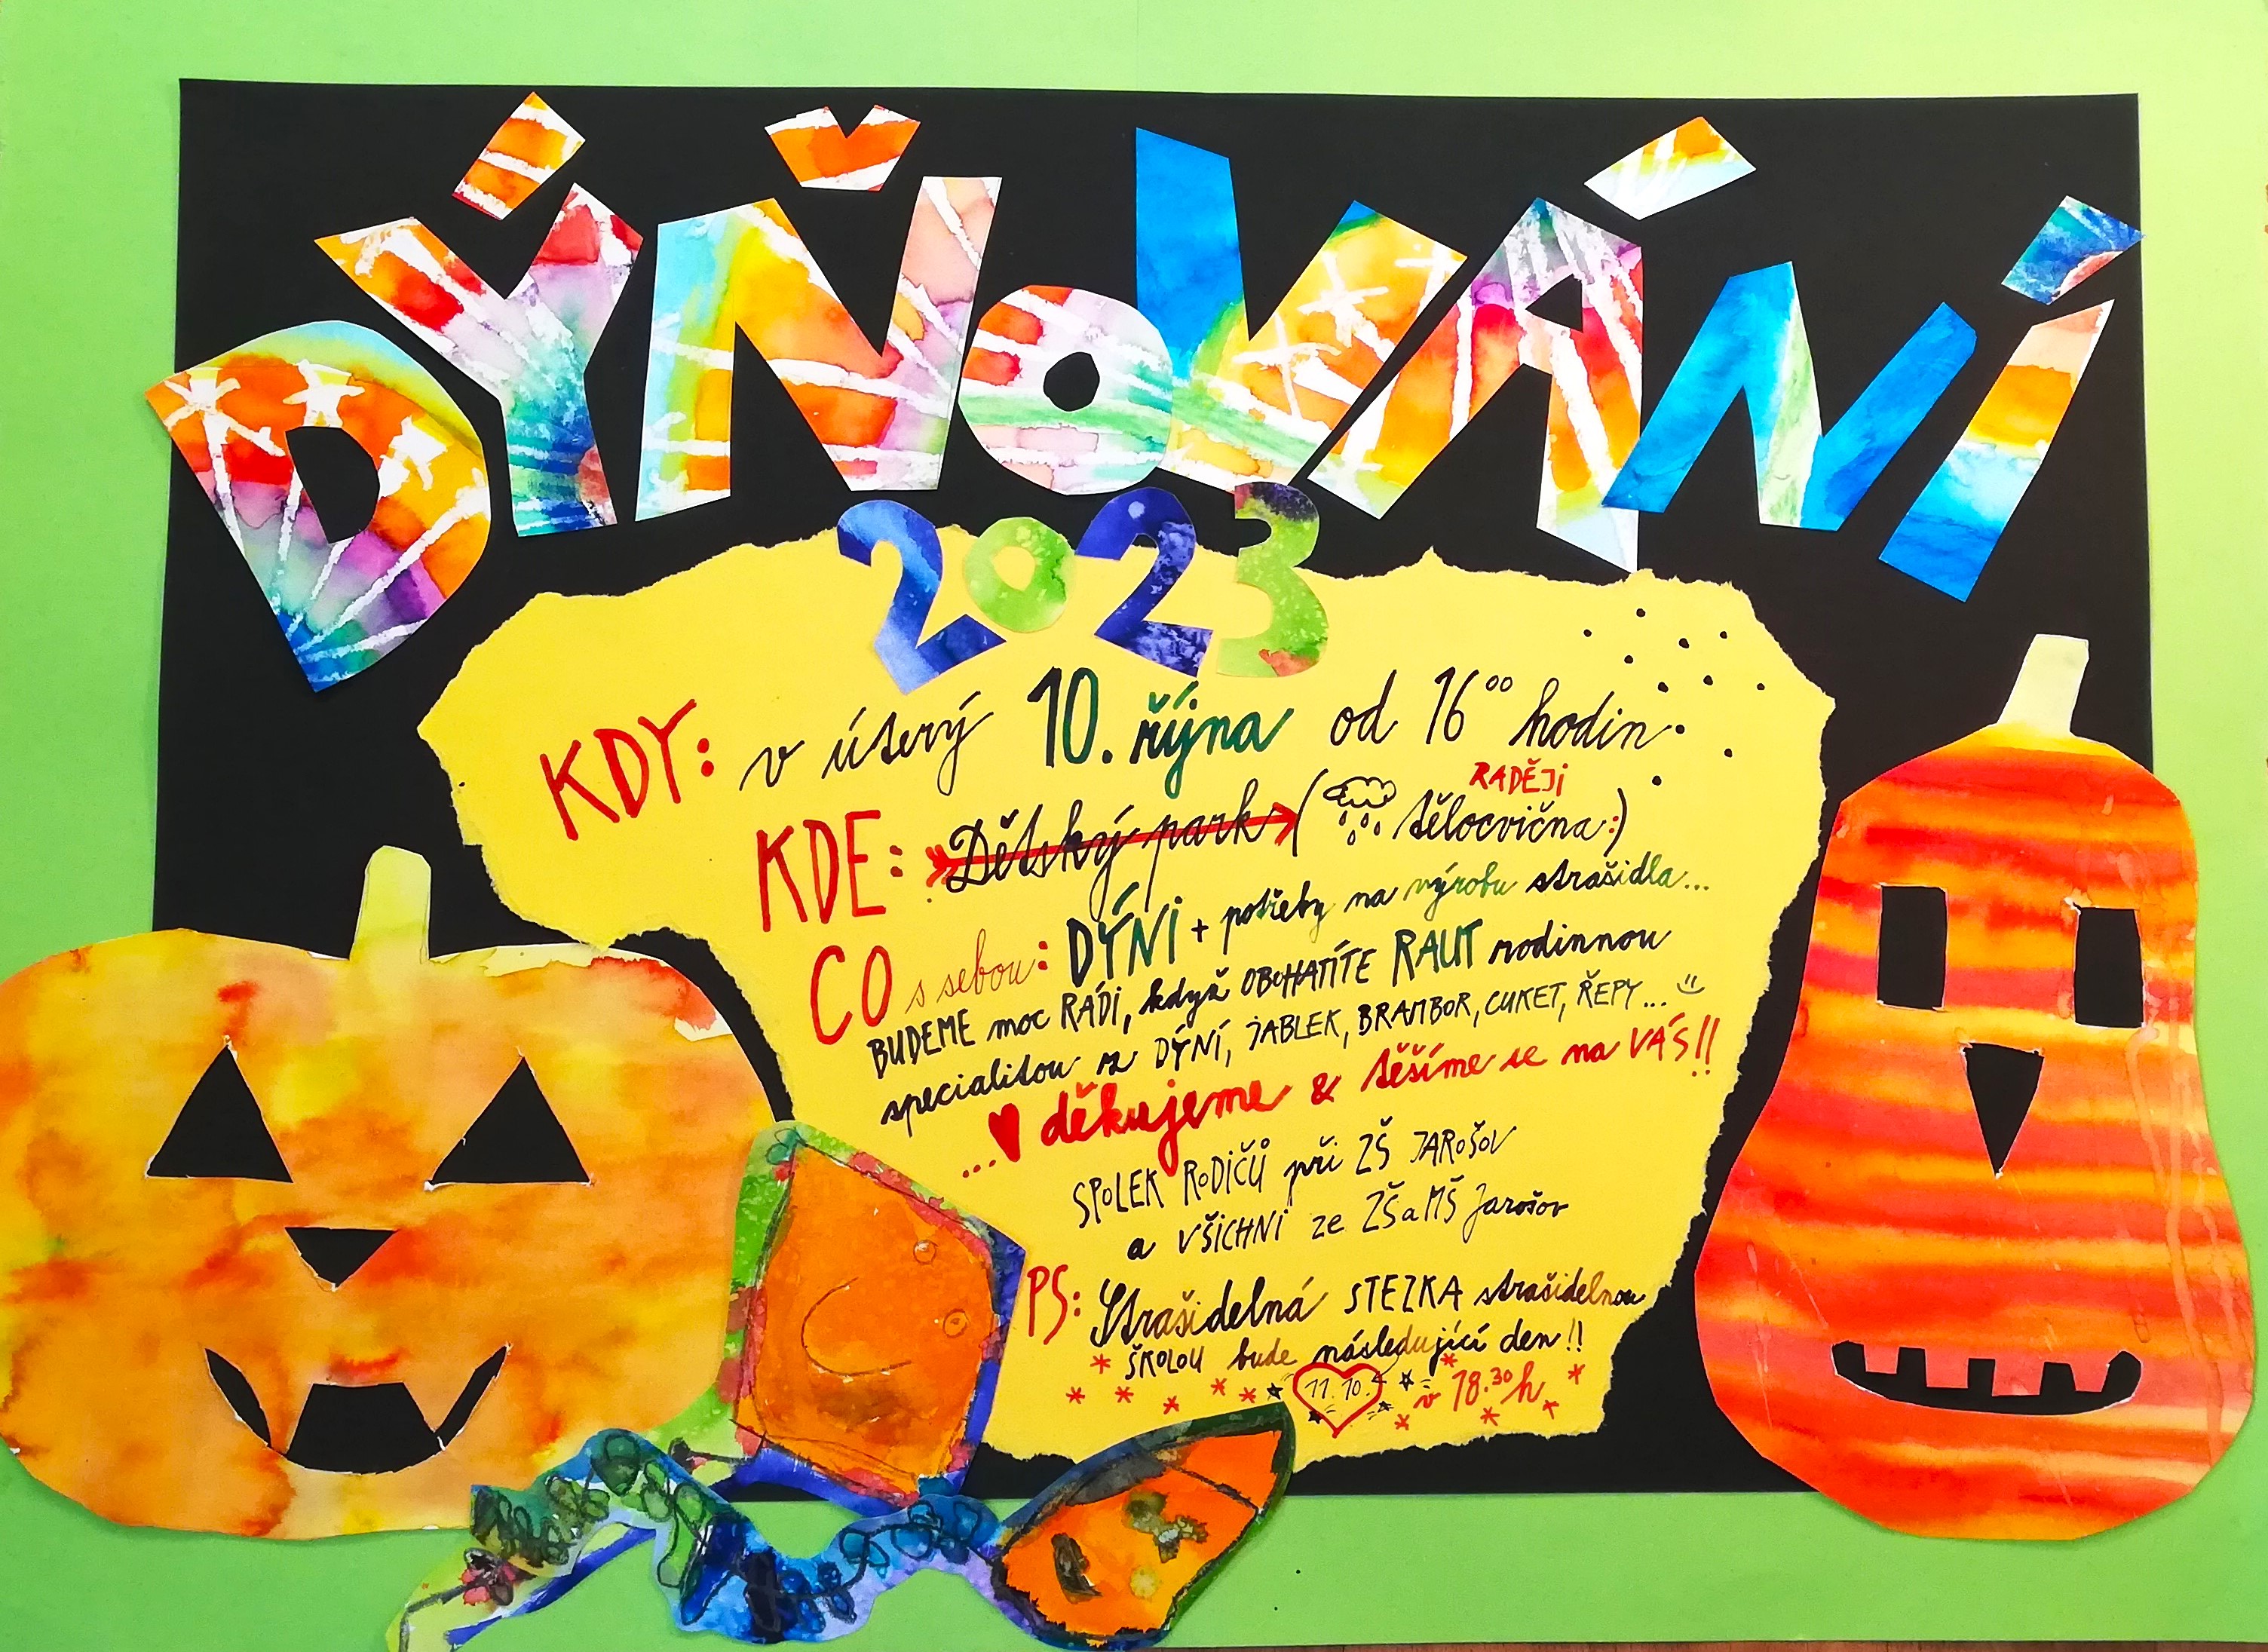 DÝŇOVÁNÍ
2023
KDY: v úterý 10. října od 16⁰⁰ hodin
RADĚJI
KDE: Dětský park ( tělocvična:)
CO s sebou: DÝNI + potřeby na výrobu strašidla...
BUDEME moc RÁDI, když OBOHATÍTE RAUT rodinnou
specialitou z DÝNÍ, JABLEK, BRAMBOR, CUKET, ŘEPY...
...♥ děkujeme & těšíme se na VÁS!!
SPOLEK RODIČŮ při ZŠ JAROŠOV
a VŠICHNI ze ZŠ a MŠ Jarošov
PS: Strašidelná STEZKA strašidelnou
ŠKOLOU bude následující den!!
11. 10. v 18.³⁰ h